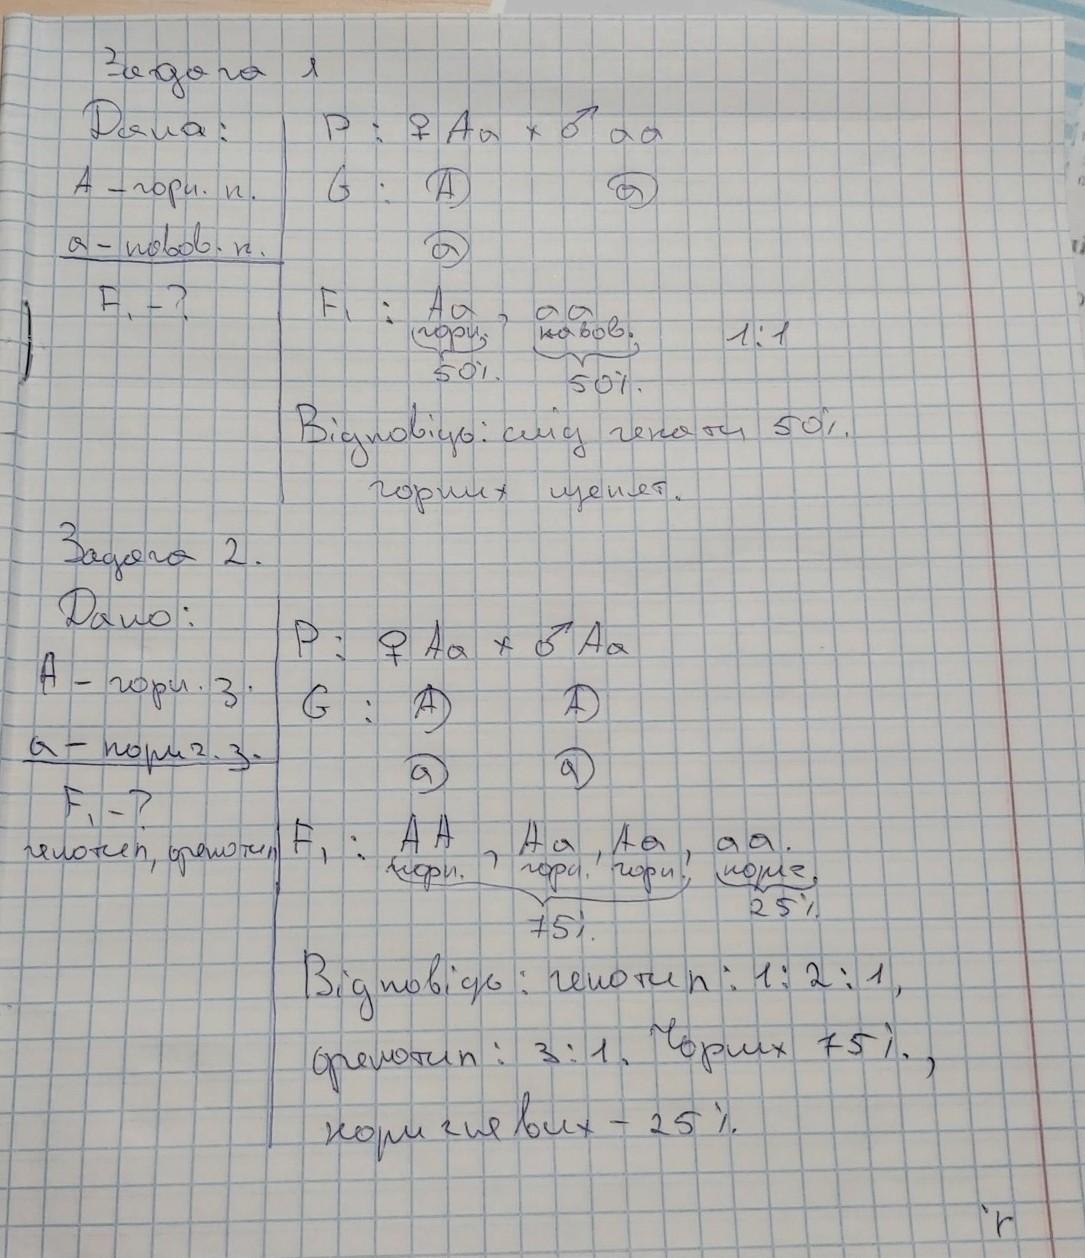 Задача 1
Дано:
A - чорн. п.
a - кавов. п.
F₁ - ?
P : ♀ Aa × ♂ aa
G : A a
a
F₁ : Aa, aa 1:1
чорн. кавов.
50%. 50%.
Відповідь: слід чекати 50%.
чорних щенят.
Задача 2.
Дано:
A - чорн. з.
a - коричн. з.
F₁ - ?
генотип, фенотип
P : ♀ Aa × ♂ Aa
G : A A
a a
F₁ : AA, Aa, Aa, aa.
чорн. чорн. чорн. корич.
75%. 25%.
Відповідь: генотип: 1:2:1,
фенотип: 3:1. Чорних 75%.,
коричневих - 25%.